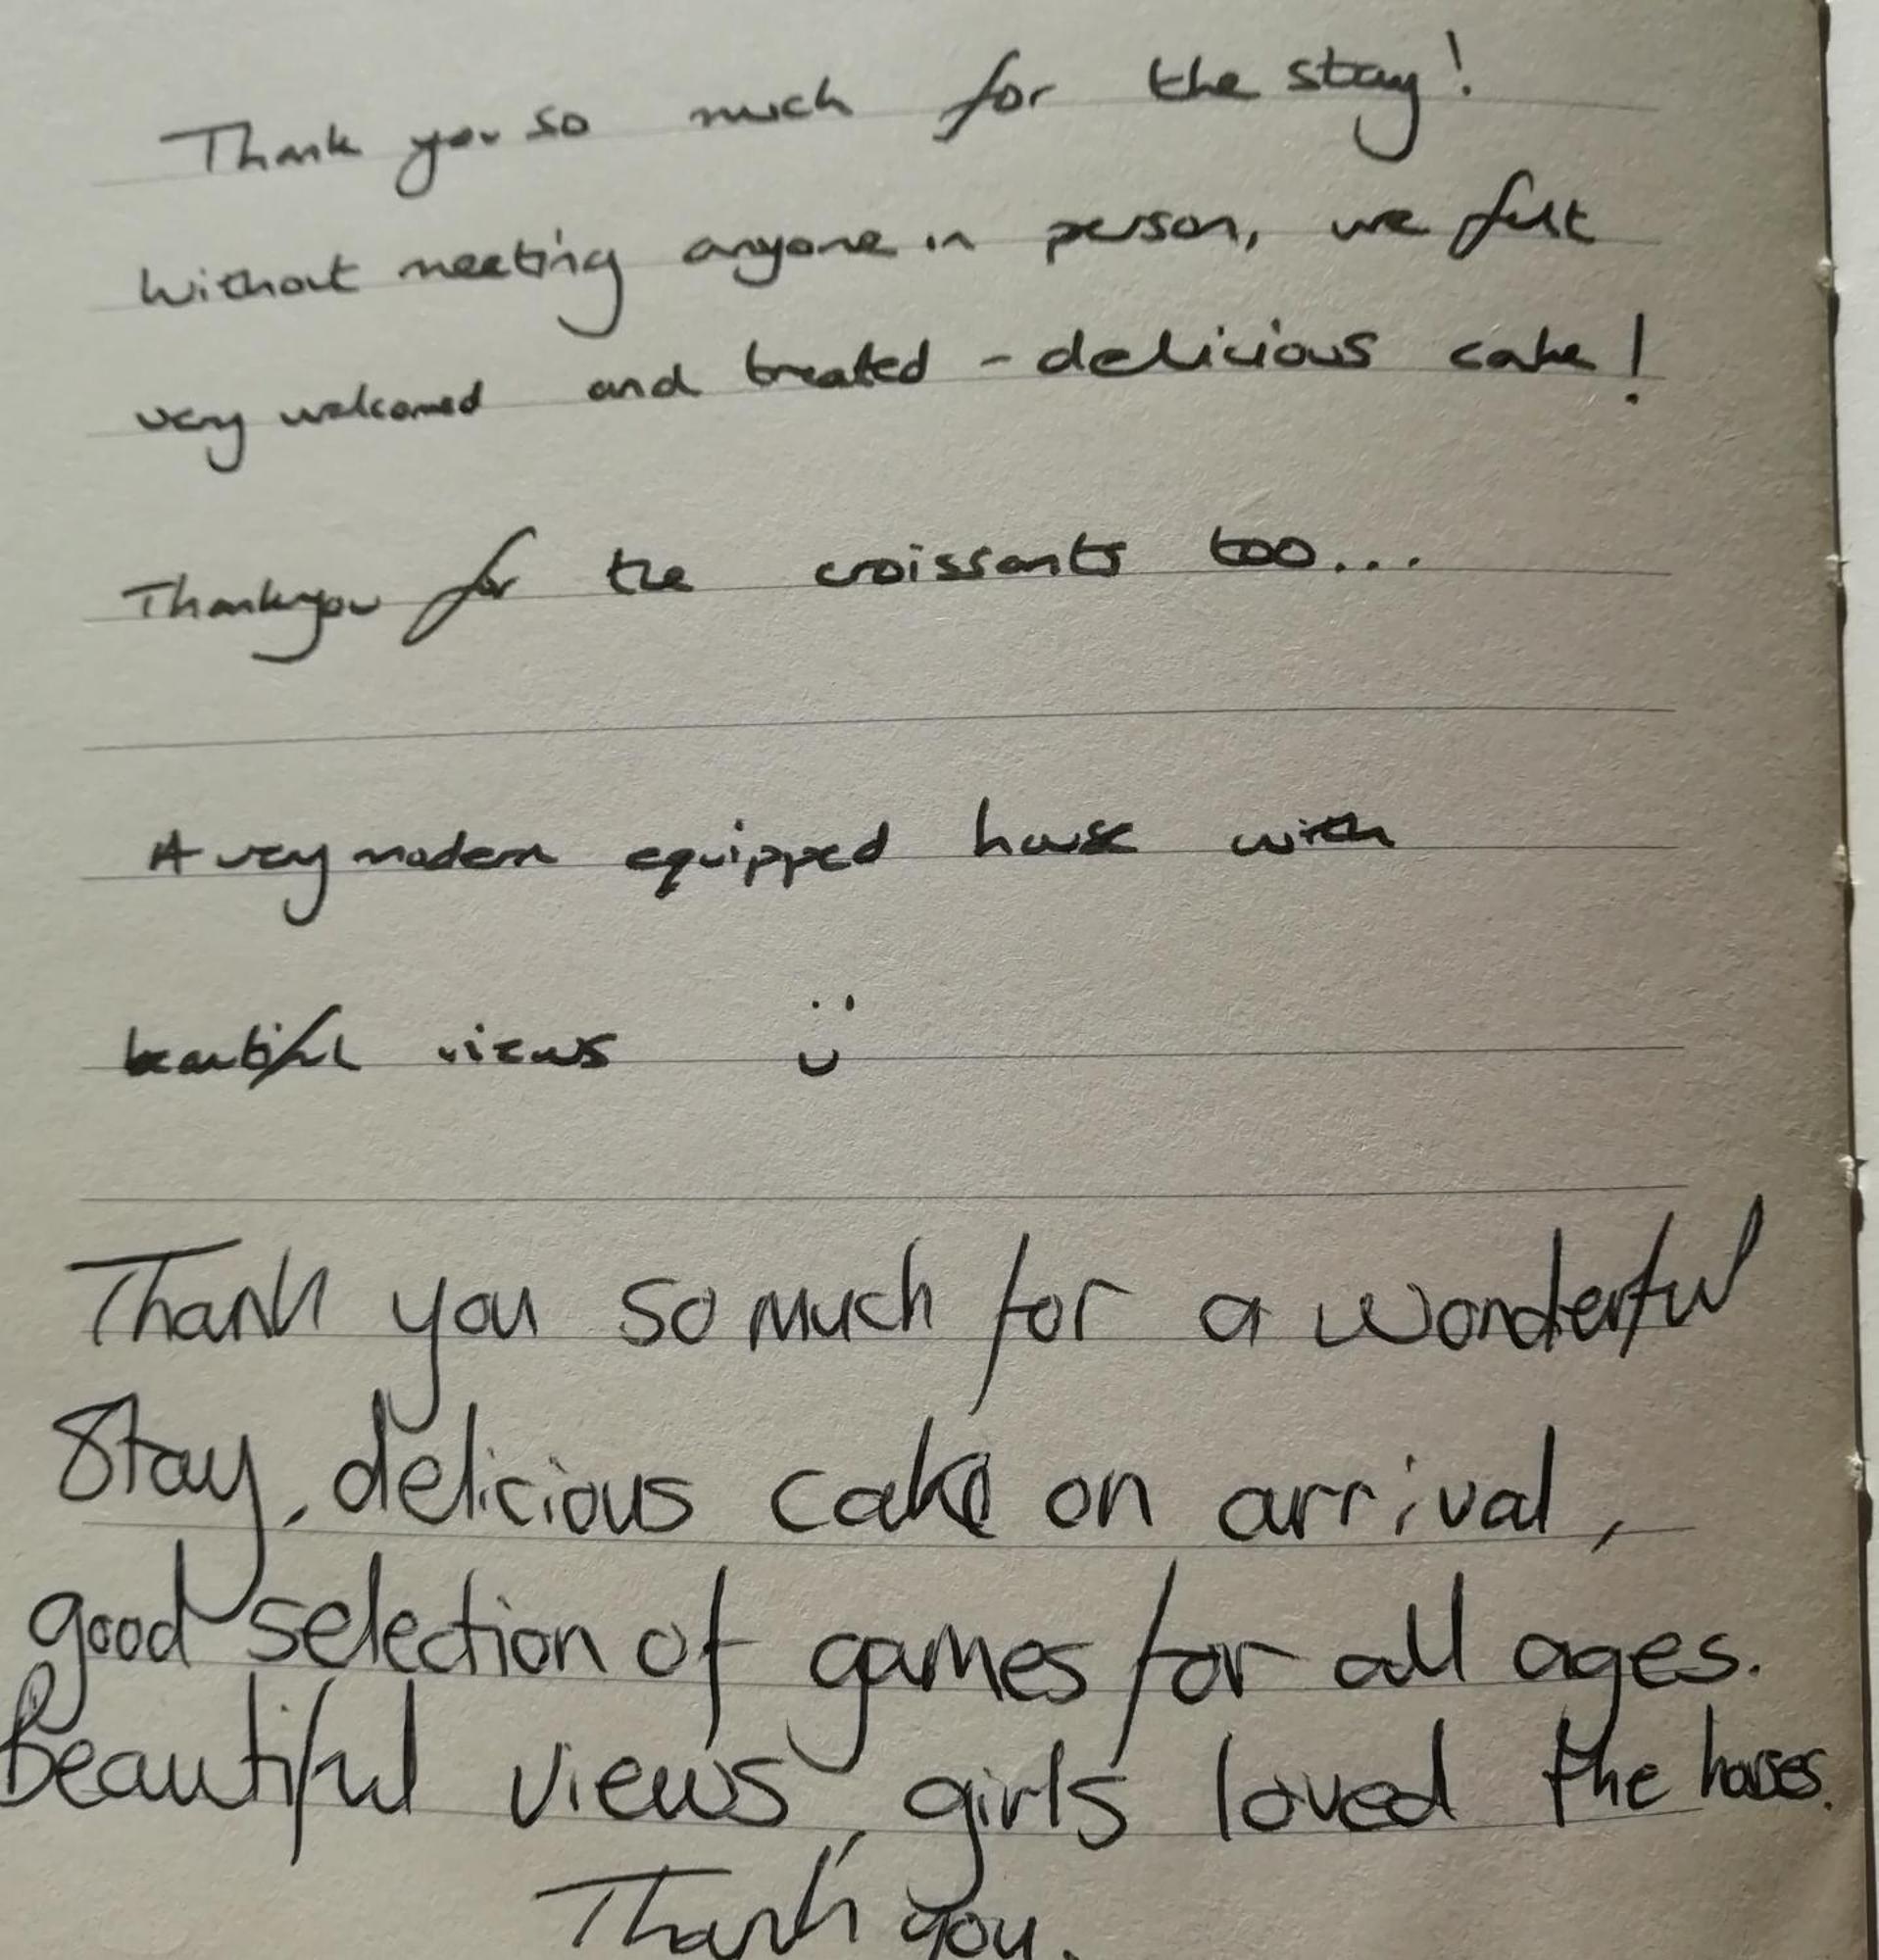 Thank you so much for the stay!
Without meeting anyone in person, we felt
very welcomed and treated - delicious cake!
Thankyou for the croissants too...
A very modern equipped house with
beautiful views :)
Thank you so much for a wonderful
Stay, delicious cake on arrival,
good selection of games for all ages.
Beautiful views, girls loved the horses.
Thank you.